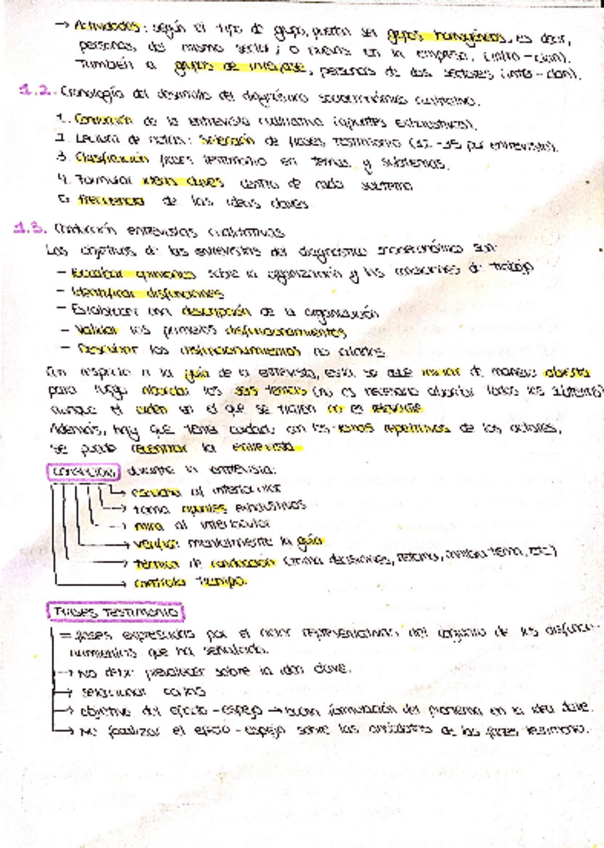 → Actividades: según el tipo de grupo, pueden ser grupos homogéneos, es decir,
personas del mismo sector; o nuevas en la empresa. (intra-clan).
También a grupos de interfase, personas de dos sectores (inter-clan).
1.2. Cronología del desarrollo del diagnóstico socioeconómico cualitativo.
1. Conducción de la entrevista cualitativa (apuntes exhaustivos).
2. Lectura de notas: Selección de frases testimonio (por entrevista).
3. Clasificación frases testimonio en temas y subtemas.
4. Formular ideas claves dentro de cada subtema
5. Frecuencia de las ideas claves
1.3. Conducción entrevistas cualitativas
Los objetivos de las entrevistas del diagnóstico socioeconómico son:
- Escuchar opiniones sobre la organización y las condiciones de trabajo
- Identificar disfunciones
- Establecer una descripción de la organización
- Validar los primeros disfuncionamientos
- Descubrir los disfuncionamientos no
Con respecto a la guía de la entrevista, esta se debe iniciar de manera abierta
para luego abordar los seis temas (no es necesario abordar todos los subtemas)
aunque el orden en el que se traten no es relevante
Además, hay que tener cuidado con los temas repetitivos de los actores,
se puede recentrar la entrevista
Conductor durante la entrevista:
→ escucha al interlocutor
→ toma apuntes exhaustivos
→ mira al interlocutor
→ verifica mentalmente la guía
→ técnica de conducción (retoma, cambia tema, etc)
→ controla tiempo.
Frases testimonio
= frases expresadas por el actor representativas del conjunto de los disfuncio-
namientos que ha señalado.
→ No debe prevalecer sobre la idea clave.
→ seleccionar
→ objetivo del efecto-espejo → buena formulación del problema en la idea clave.
→ No focalizar el efecto-espejo sobre las anécdotas de las frases testimonio.